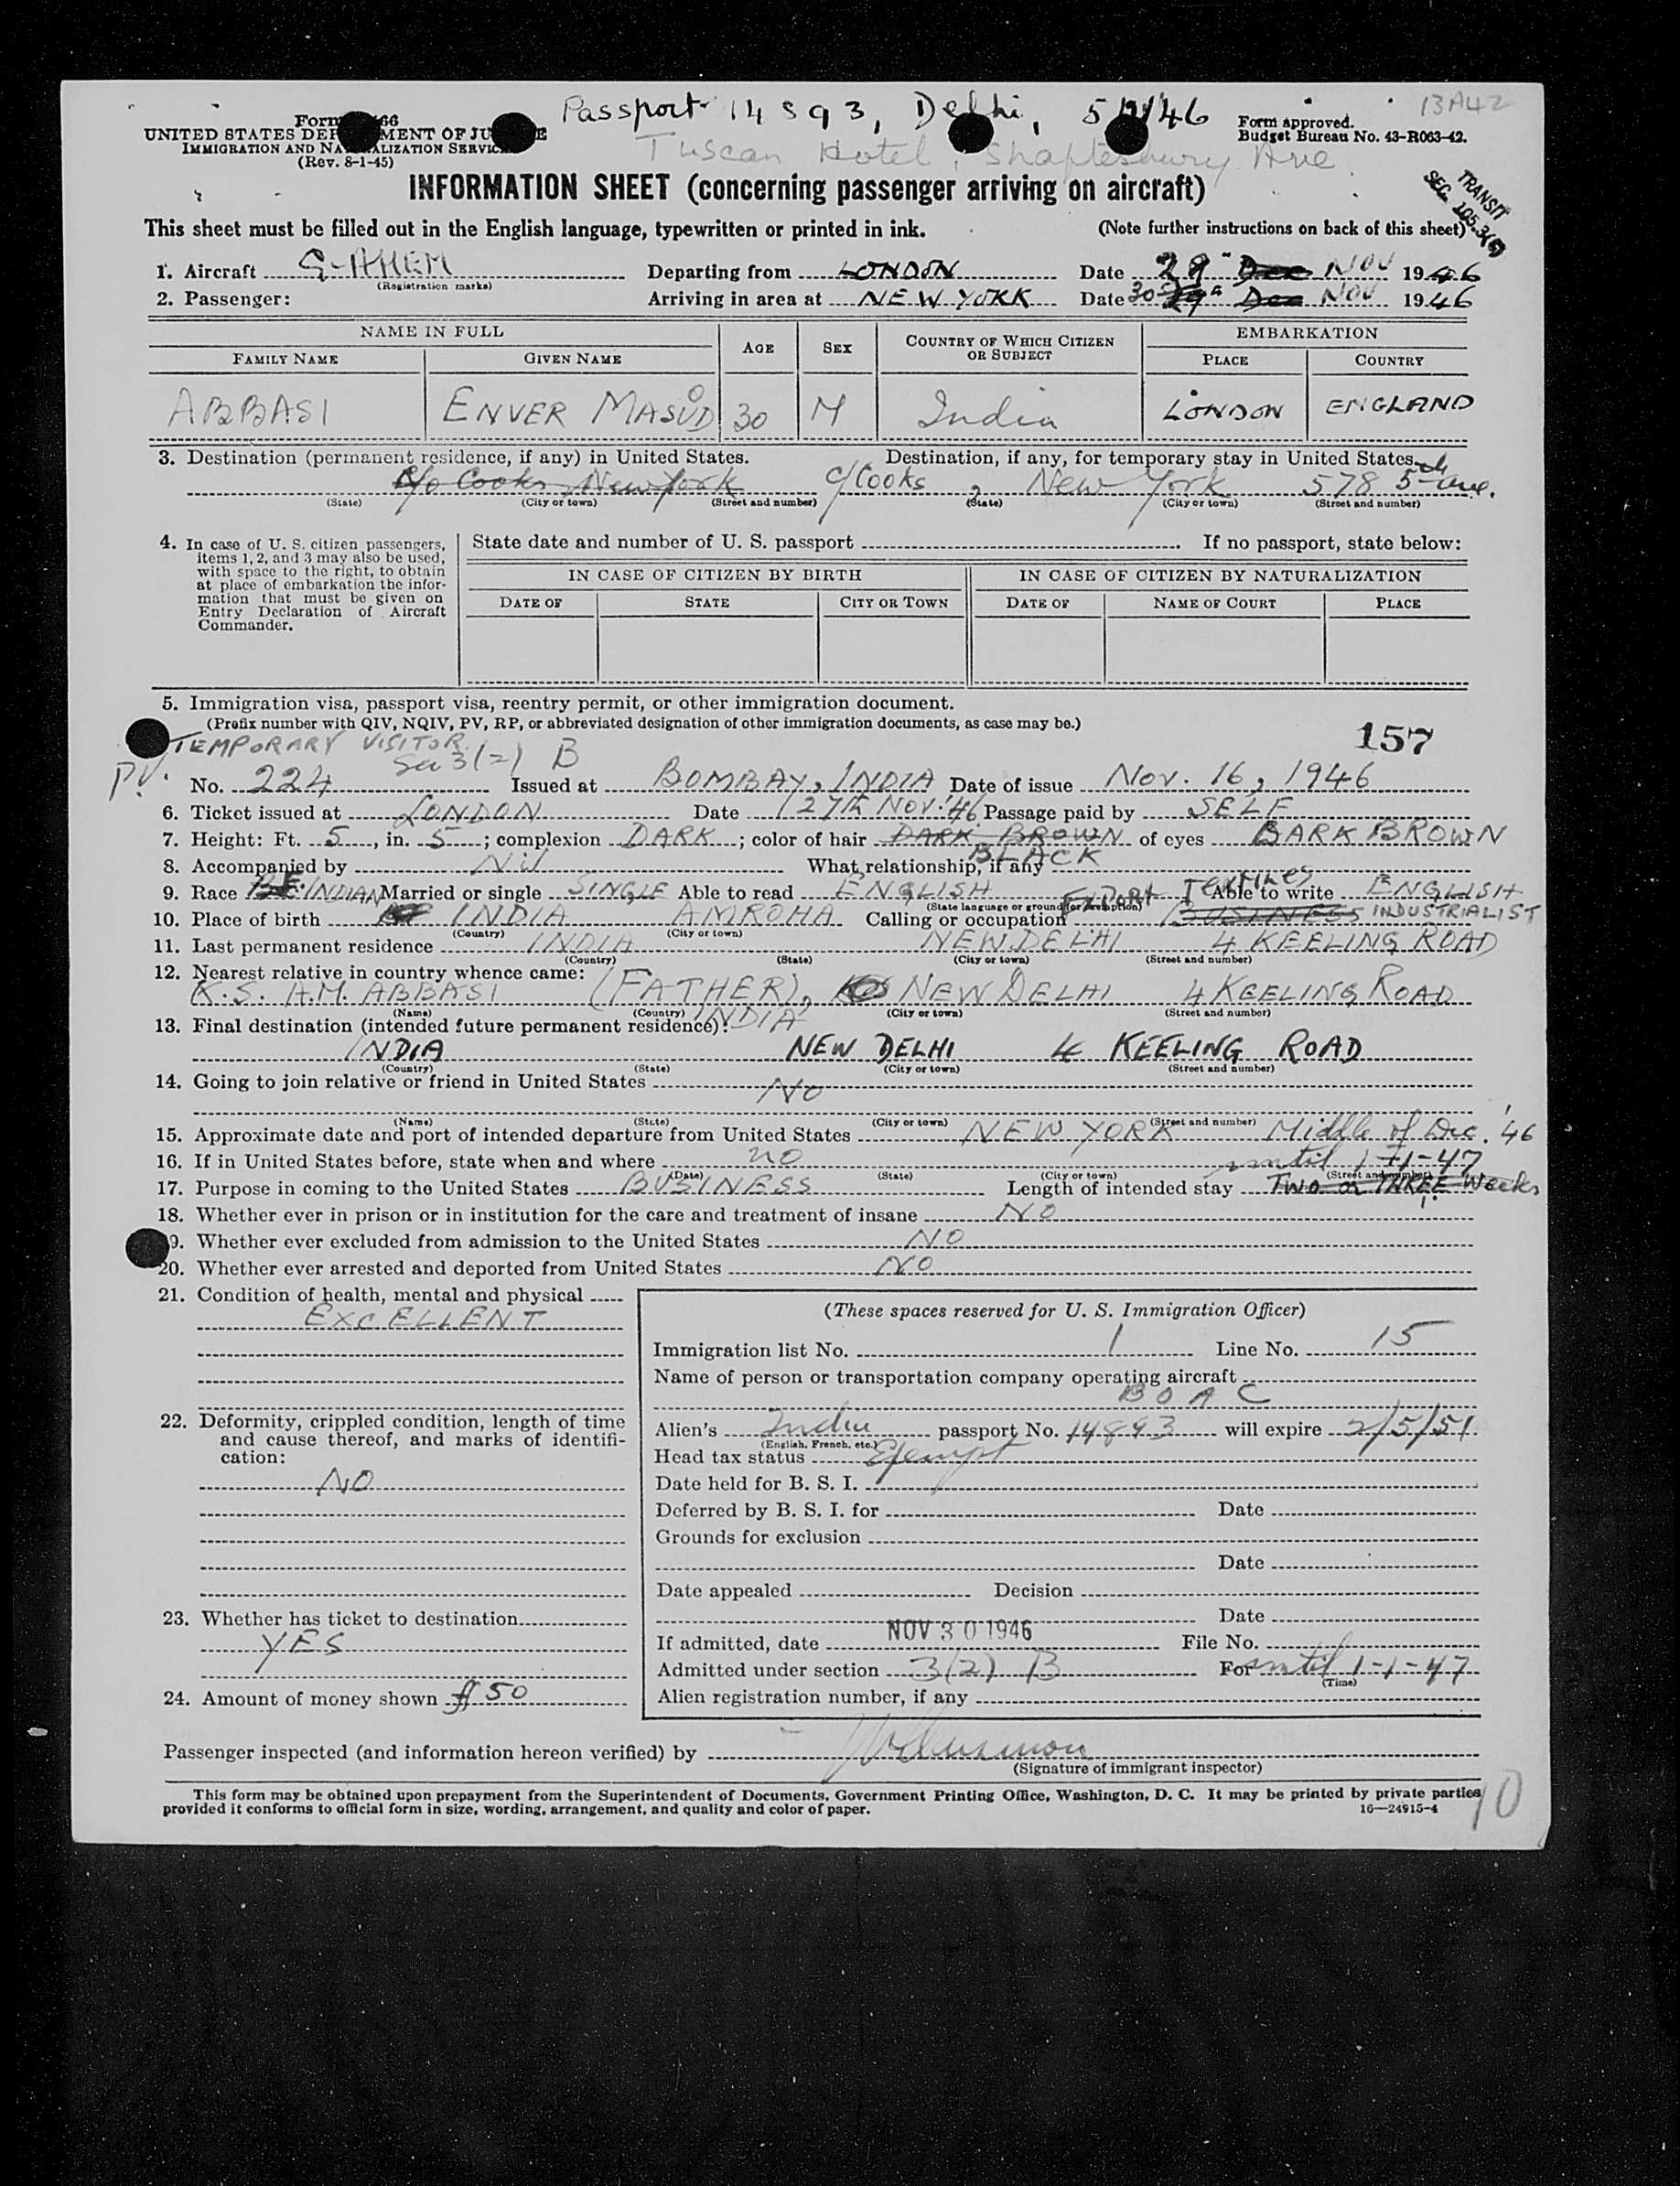 Passport 14893, Delhi, 46
13A42
Form 66
UNITED STATES DEPARTMENT OF JUSTICE
IMMIGRATION AND NATURALIZATION SERVICE
(Rev. 8-1-45)
Form approved.
Budget Bureau No. 43-R063-42.
Tuscan Hotel, Shaftesbury Ave.
TRANSIT
SEC. 105.3
INFORMATION SHEET (concerning passenger arriving on aircraft)
This sheet must be filled out in the English language, typewritten or printed in ink. (Note further instructions on back of this sheet)
1. Aircraft G-AHEM Departing from LONDON Date Dec Nov 1946
(Registration marks)
2. Passenger: Arriving in area at NEW YORK Date 30 Dec Nov 1946
NAME IN FULL AGE SEX COUNTRY OF WHICH CITIZEN OR SUBJECT EMBARKATION
FAMILY NAME GIVEN NAME PLACE COUNTRY
ABBASI ENVER MASUD 30 M India LONDON ENGLAND
3. Destination (permanent residence, if any) in United States. Destination, if any, for temporary stay in United States.
c/o Cooks, New York c/Cooks, New York 578 5th Ave.
(State) (City or town) (Street and number) (State) (City or town) (Street and number)
4. In case of U. S. citizen passengers, items 1, 2, and 3 may also be used, with space to the right, to obtain at place of embarkation the information that must be given on Entry Declaration of Aircraft Commander.
State date and number of U. S. passport . If no passport, state below:
IN CASE OF CITIZEN BY BIRTH IN CASE OF CITIZEN BY NATURALIZATION
DATE OF STATE CITY OR TOWN DATE OF NAME OF COURT PLACE
5. Immigration visa, passport visa, reentry permit, or other immigration document.
(Prefix number with QIV, NQIV, PV, RP, or abbreviated designation of other immigration documents, as case may be.)
157
TEMPORARY VISITOR
Sec 3(2) B
P.V. No. 224 Issued at BOMBAY, INDIA Date of issue Nov. 16, 1946
6. Ticket issued at LONDON Date 27th NOV. '46 Passage paid by SELF
7. Height: Ft. 5, in. 5; complexion DARK; color of hair DARK BROWN of eyes DARK BROWN
BLACK
8. Accompanied by Nil What relationship, if any
9. Race INDIAN Married or single SINGLE Able to read ENGLISH Able to write ENGLISH
(State language or ground for exemption)
10. Place of birth INDIA AMROHA Calling or occupation EXPORT Textiles BUSINESS INDUSTRIALIST
(Country) (City or town)
11. Last permanent residence INDIA NEW DELHI 4 KEELING ROAD
(Country) (State) (City or town) (Street and number)
12. Nearest relative in country whence came:
K.S. A.M. ABBASI (FATHER), NEW DELHI 4 KEELING ROAD
(Name) (Country) (City or town) (Street and number)
INDIA
13. Final destination (intended future permanent residence):
INDIA NEW DELHI 4 KEELING ROAD
(Country) (State) (City or town) (Street and number)
14. Going to join relative or friend in United States NO
(Name) (State) (City or town) (Street and number)
15. Approximate date and port of intended departure from United States NEW YORK Middle of Dec. '46
16. If in United States before, state when and where no
(Date) (State) (City or town) (Street and number)
until 1-1-47
17. Purpose in coming to the United States BUSINESS Length of intended stay TWO or THREE Weeks
18. Whether ever in prison or in institution for the care and treatment of insane NO
19. Whether ever excluded from admission to the United States NO
20. Whether ever arrested and deported from United States NO
21. Condition of health, mental and physical
EXCELLENT
22. Deformity, crippled condition, length of time and cause thereof, and marks of identification:
NO
23. Whether has ticket to destination
YES
24. Amount of money shown 50
(These spaces reserved for U. S. Immigration Officer)
Immigration list No. 1 Line No. 15
Name of person or transportation company operating aircraft
BOAC
Alien's India passport No. 14893 will expire 2/5/51
(English, French, etc.)
Head tax status Exempt
Date held for B. S. I.
Deferred by B. S. I. for Date
Grounds for exclusion
Date
Date appealed Decision
Date
If admitted, date NOV 30 1946 File No.
Admitted under section 3(2) B For until 1-1-47
(Time)
Alien registration number, if any
Passenger inspected (and information hereon verified) by
(Signature of immigrant inspector)
This form may be obtained upon prepayment from the Superintendent of Documents, Government Printing Office, Washington, D. C. It may be printed by private parties
provided it conforms to official form in size, wording, arrangement, and quality and color of paper. 16—24915-4
10